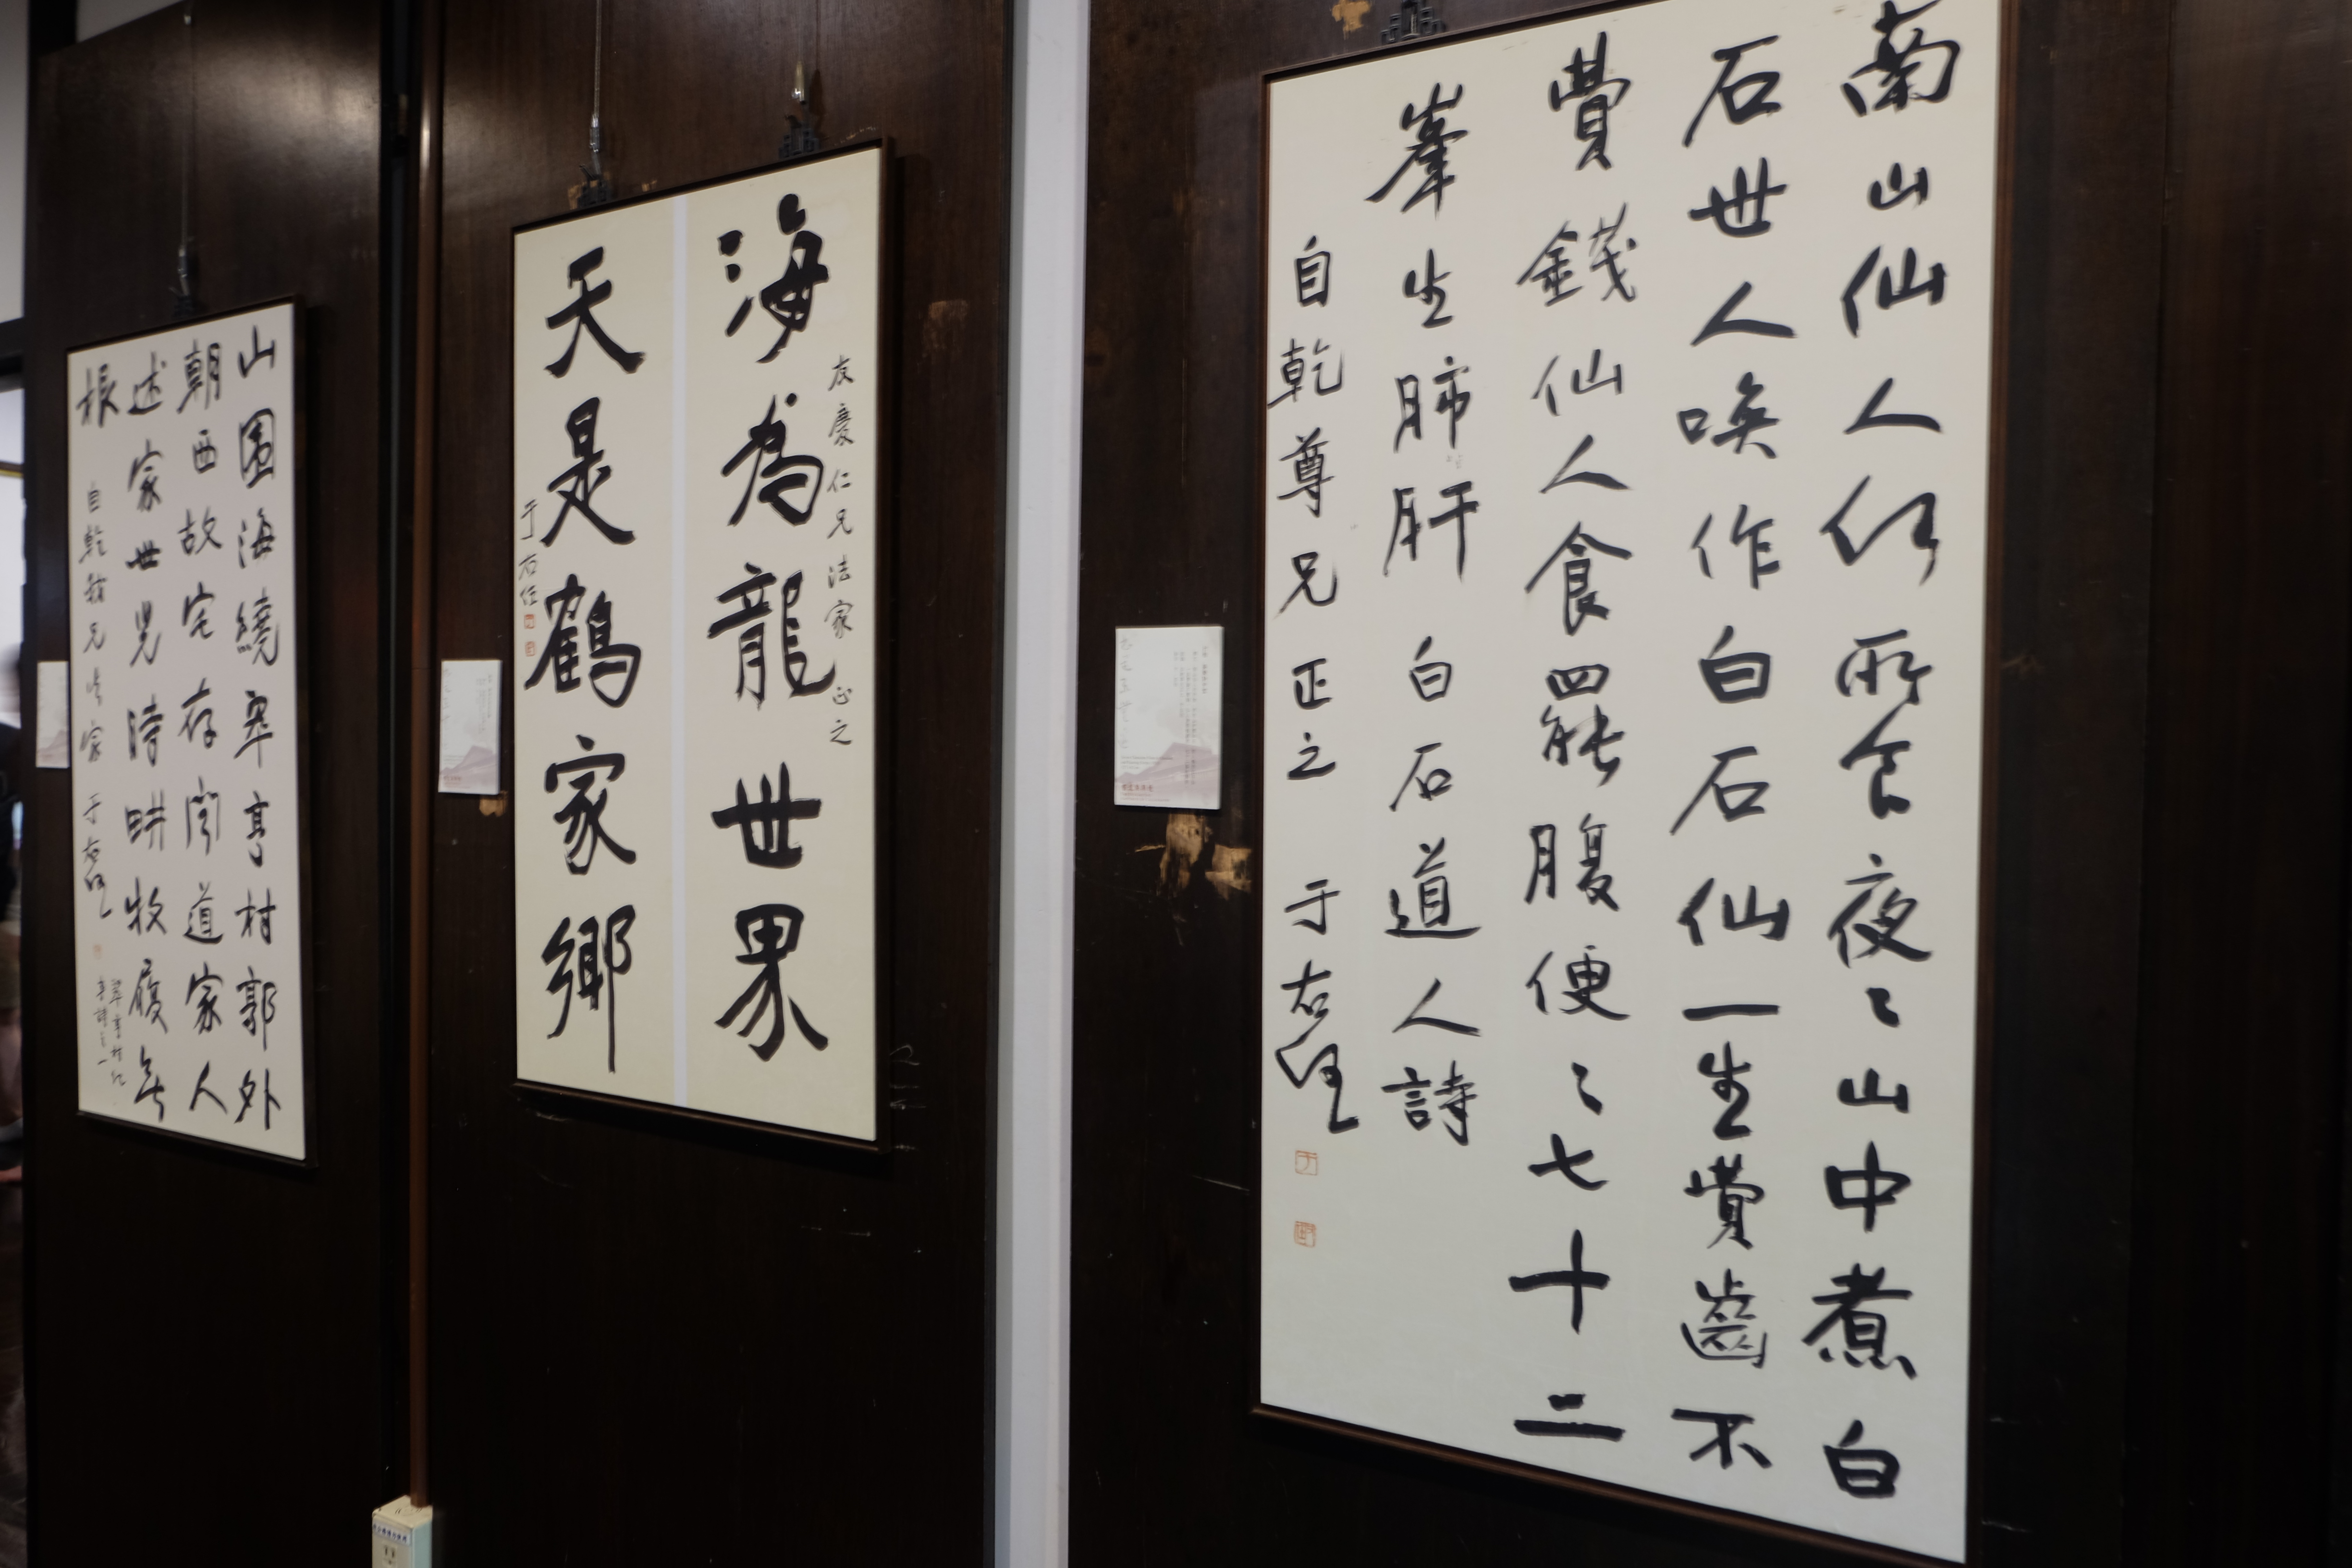 南山仙人何所食夜〻山中煮白
石世人喚作白石仙一生費齒不
費錢仙人食罷腹便〻七十二
峯生肺肝 白石道人詩
自乾尊兄正之 于右任
友慶仁兄法家正之
海為龍世界
天是鶴家鄉
于右任
山圍海繞翠亨村郭外
朝西故宅存聞道家人
述家世兒時畊牧履無
根
自乾我兄法家 于右任
翠亨村紀
事詩之一